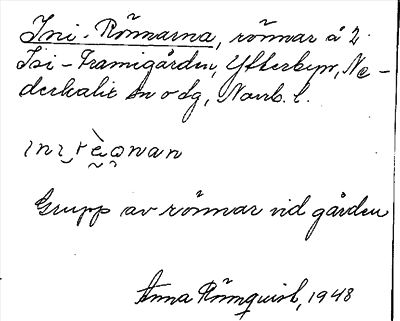 Ini-Rönnarna, rönnar å 2
Isi-Framigården, Ytterbyn, Ne-
derkalix sn o dg, Norrb. l.
Grupp av rönnar vid gården
Anna Rönnquist, 1948